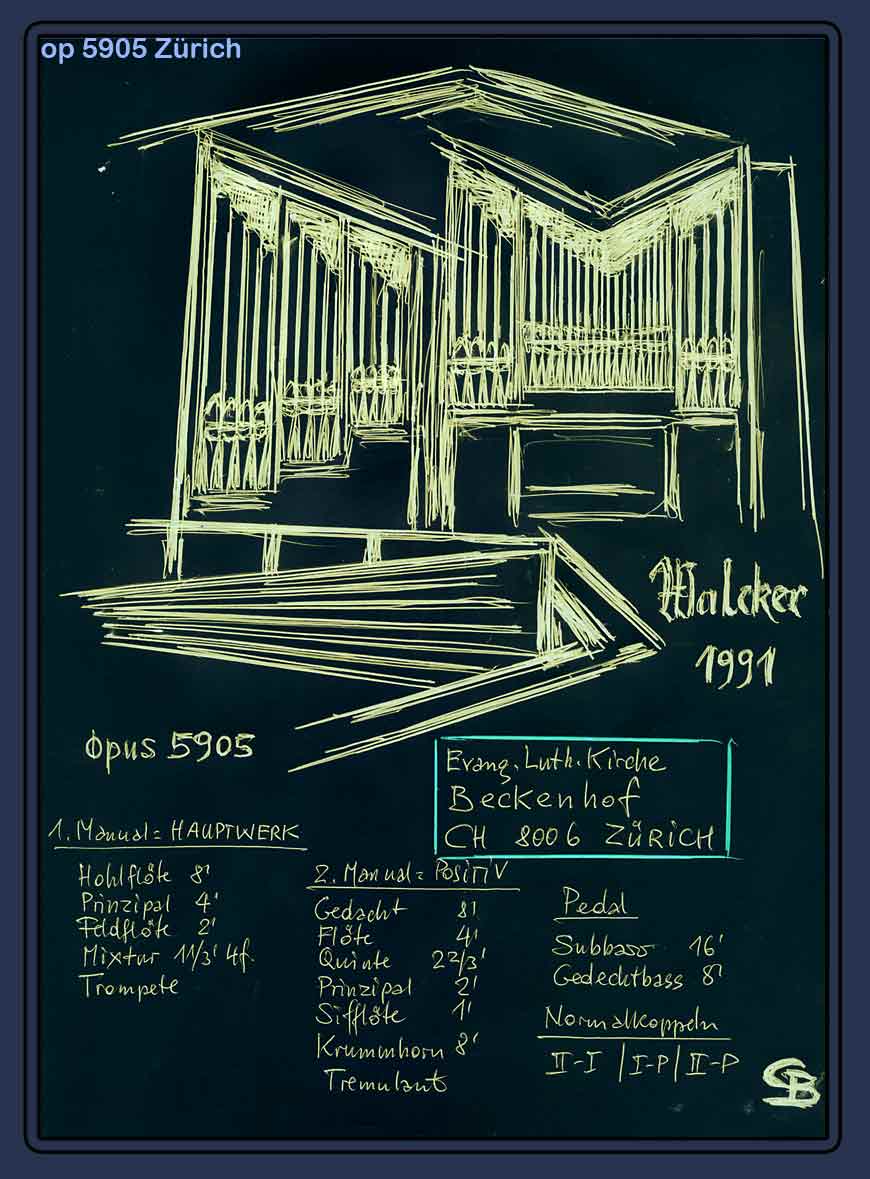 op 5905 Zürich
Walcker
1991
Opus 5905
Evang. Luth. Kirche
Beckenhof
CH 8006 ZÜRICH
1. Manual = HAUPTWERK
Hohlflöte 8'
Prinzipal 4'
Feldflöte 2'
Mixtur 11/3' 4f.
Trompete
2. Manual = POSITIV
Gedackt 8'
Flöte 4'
Quinte 22/3'
Prinzipal 2'
Sifflöte 1'
Krummhorn 8'
Tremulant
Pedal
Subbass 16'
Gedecktbass 8'
Normalkoppeln
II-I | I-P | II-P
GB